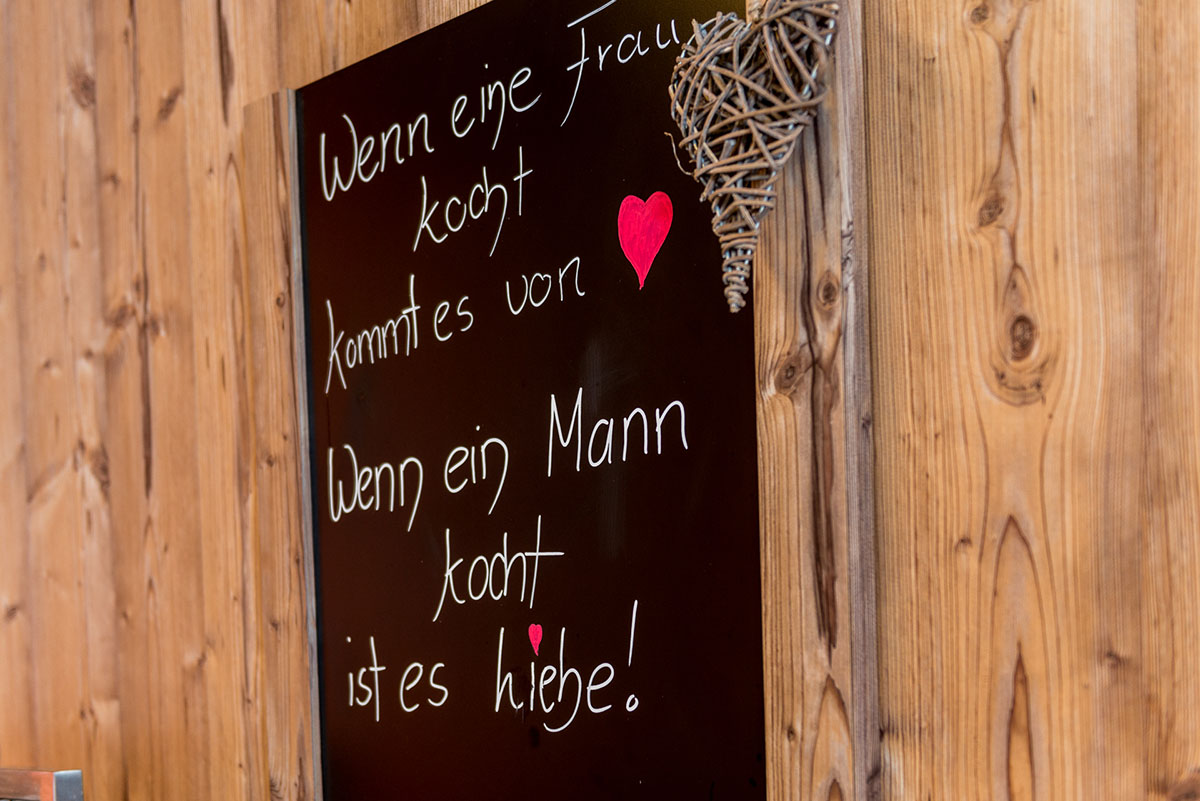 Wenn eine Frau
kocht
kommt es von ♥
Wenn ein Mann
kocht
ist es Liebe!